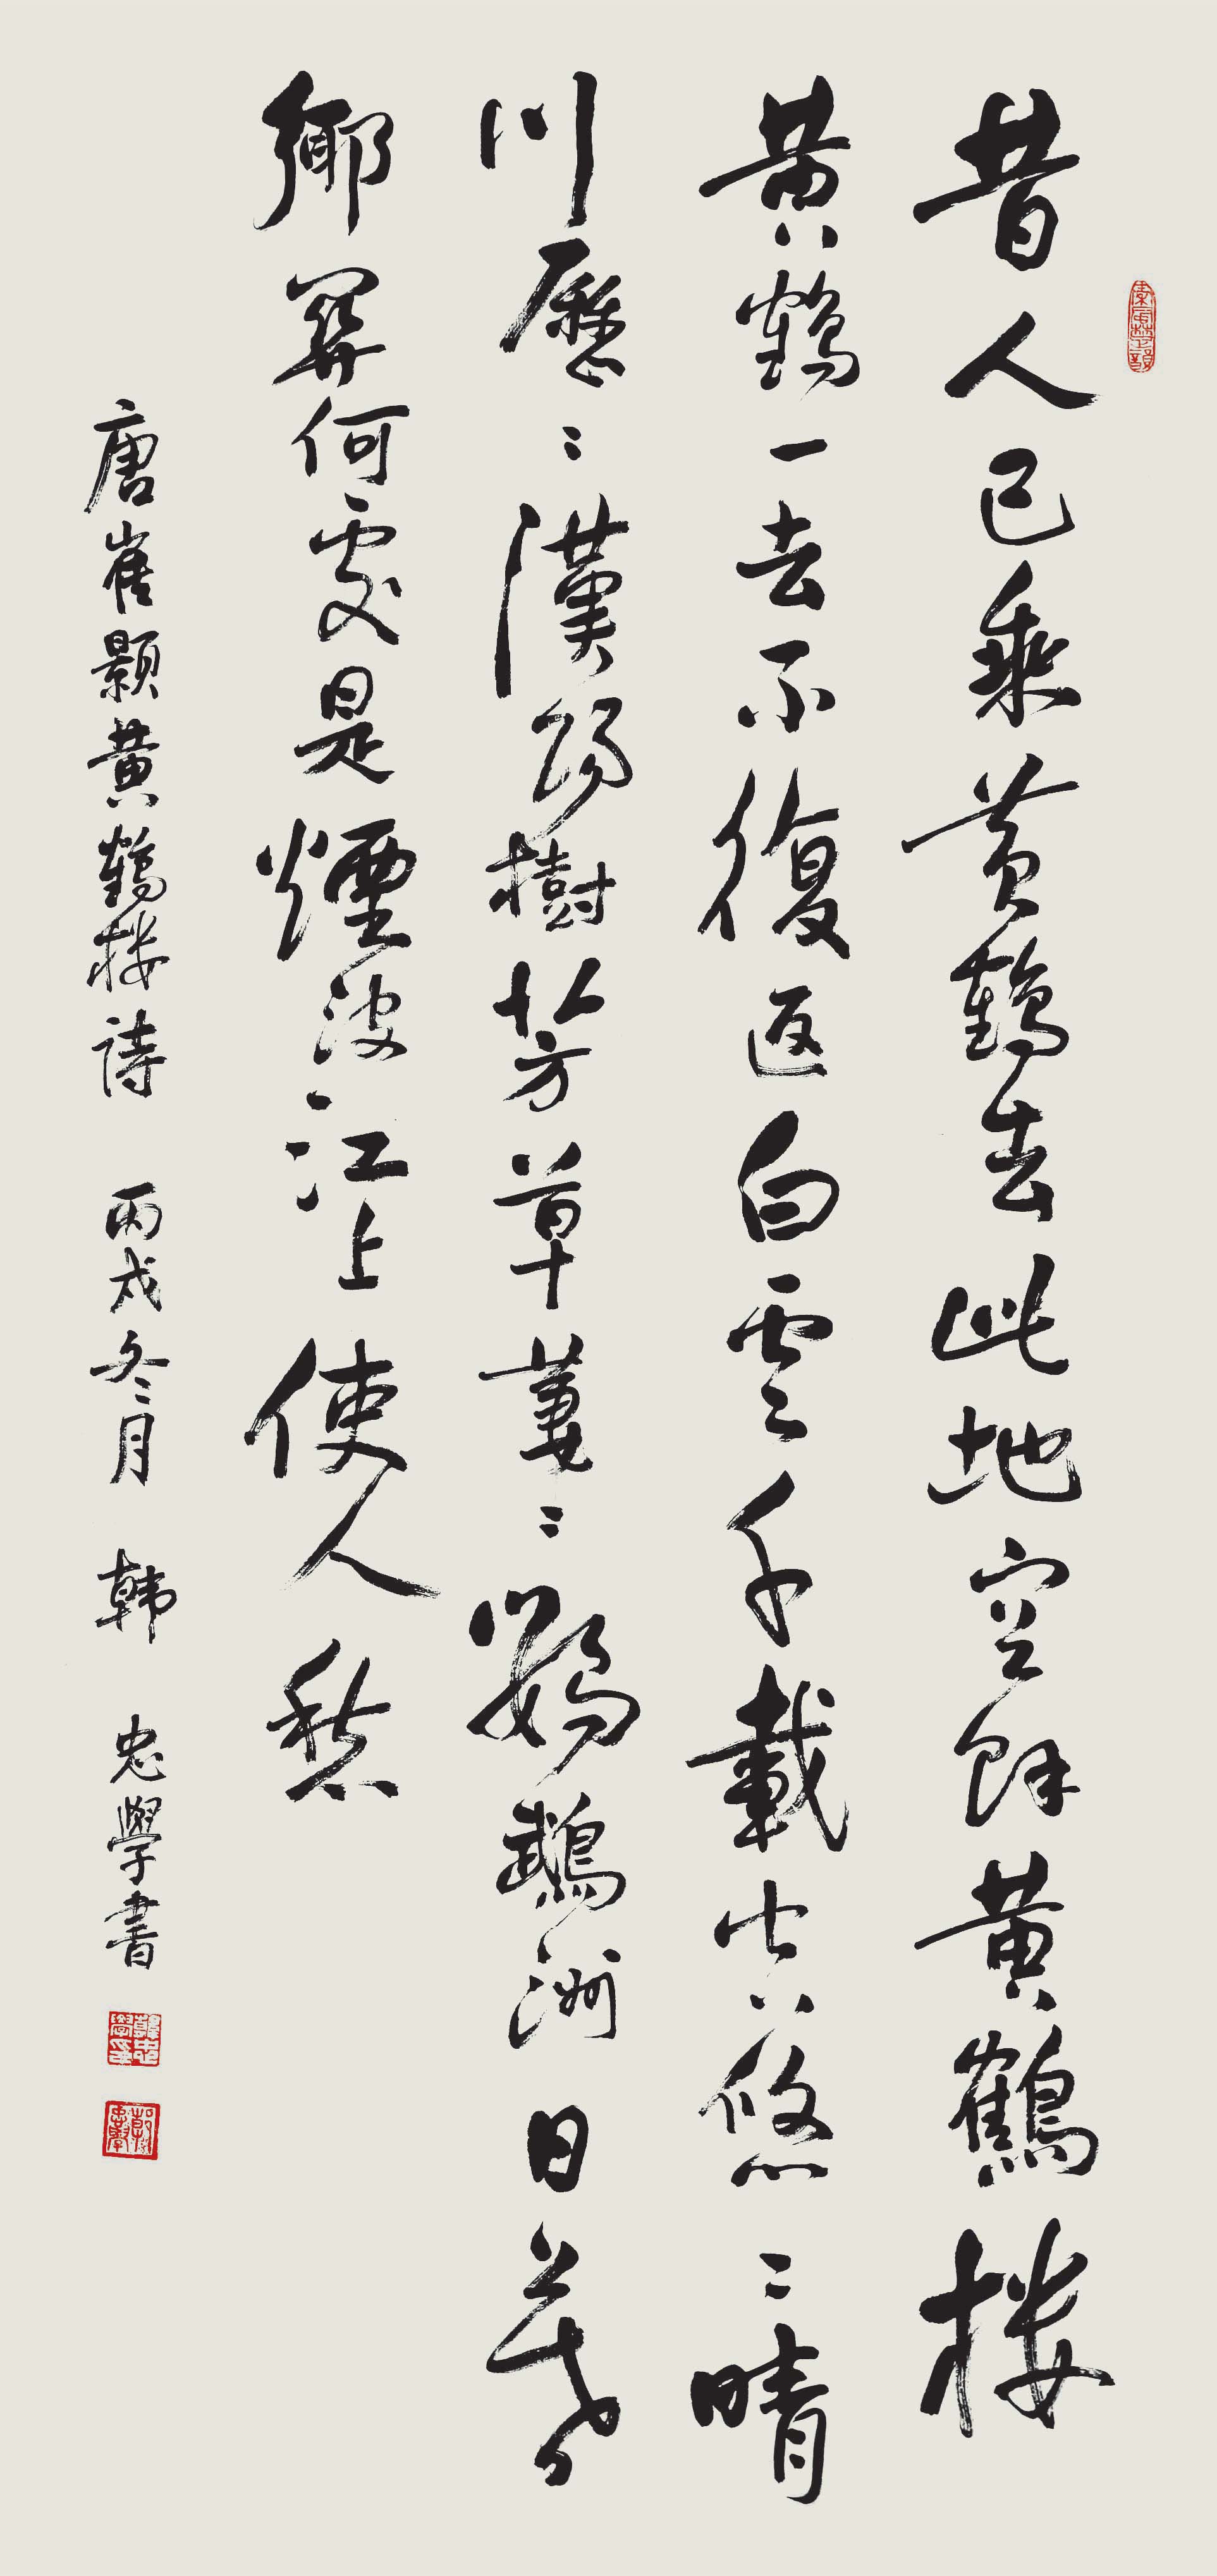 昔人已乘黄鶴去此地空餘黄鶴楼
黄鶴一去不復返白雲千載空悠〻晴
川歷〻漢陽樹芳草萋〻鸚鵡洲日暮
鄉關何處是煙波江上使人愁
唐崔顥黄鶴楼詩 丙戌冬月 韩 忠學書
韓忠學印